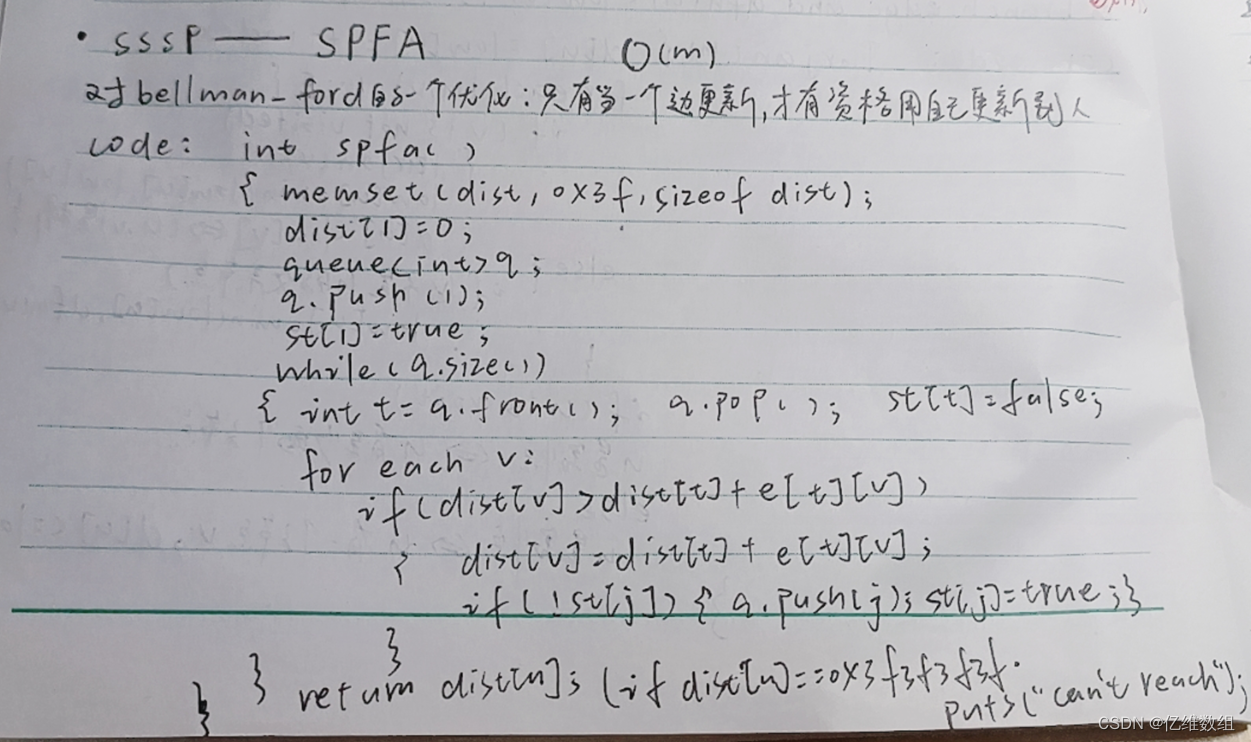 • SSSP —— SPFA O(m)
对bellman-ford的一个优化:只有当一个边更新,才有资格用自己更新别人
code: int spfa( )
{ memset(dist, 0x3f, sizeof dist);
dist[1]=0;
queue<int> q;
q.push(1);
st[1]=true;
while(q.size())
{ int t=q.front(); q.pop( ); st[t]=false;
for each v:
if(dist[v]>dist[t]+e[t][v])
{ dist[v]=dist[t]+e[t][v];
if(!st[j]) { q.push(j); st[j]=true;}
}
} return dist[n]; (if dist[n]==0x3f3f3f3f.
} puts("can't reach");
CSDN @亿维数组